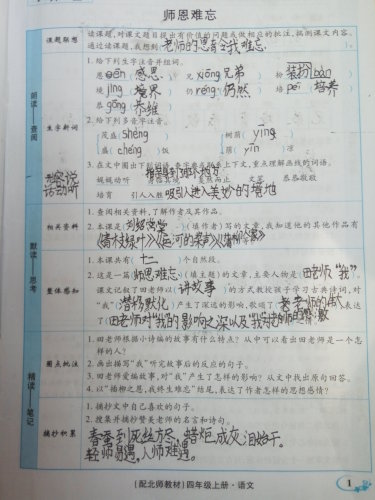 师恩难忘
课题联想
读课题,对课文题目提出有价值的问题或做相应的批注,揣测课文内容。
通过读课题,我想到老师的恩育令我难忘
朗读——查阅
生字新词
1. 给下列生字注音并组词。
恩ēn 感恩 兄xiōng兄弟 扮 装扮bàn
境jìng 境界 仍réng 仍然 培péi 培养
恭gōng
2. 给下列多音字注音。
茂盛 shèng 树荫 yīng
盛 chéng 饭 荫 yīn 凉
3. 在文中圈出下列词语,查字典并联系上下文,重点理解画线的词语。
形容说话动听
娓娓动听 身临其境 戛然而止 文笔 恭恭敬敬
培育 引人入胜 吸引人进入美妙的境地
默读——思考
相关资料
1. 查阅相关资料,了解作者及其作品。
2. 本课是刘绍棠(填作者)写的文章,我知道他的其他作品有
《青枝绿叶》《运河的桨声》《蒲柳人家》
整体感知
1. 本课共有(十二)个自然段。
2. 这是一篇师恩难忘(填主题)的文章,主要人物是田老师“我”。
课文记叙了田老师以(讲故事)的方式教授孩子学习古典诗词,对
“我”(潜移默化)产生了深远的影响,歌颂了老师的伟大表达
了田老师对“我”的影响之深以及
精读——笔记
圈点批注
1. 田老师根据小诗编的故事有什么特点?从中可以看出田老师是一个怎
样的人?
2. 画出描写“我”听完故事后的反应的句子。
3. 田老师爱编故事,对“我”产生了怎样的影响?从文中找出原句回答。
4. 以“插柳之恩,我终生难忘”结尾,表达了作者怎样的思想感情?
摘抄积累
1. 摘抄文中自己喜欢的句子。
2. 搜集并摘抄赞美老师的名言和诗句。
春蚕到死丝方尽,蜡炬成灰泪始干。
经师易遇,人师难遇。
(配北师教材)四年级上册·语文
1